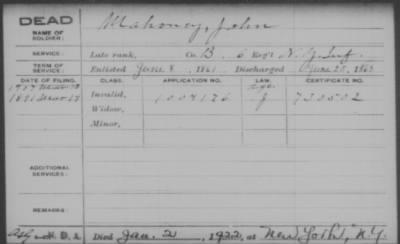 DEAD
NAME OF SOLDIER:
Mahoney, John
SERVICE:
Late rank, Co. B, 6 Reg't N.Y. Inf.
TERM OF SERVICE:
Enlisted June 8, 1861 Discharged June 25, 1863
DATE OF FILING. CLASS. APPLICATION NO. LAW. CERTIFICATE NO.
1907
age
1891 Invalid, 1004126 J 730502
Widow,
Minor,
ADDITIONAL SERVICES:
REMARKS:
Died Jan. 2, 1922, at New York N.Y.